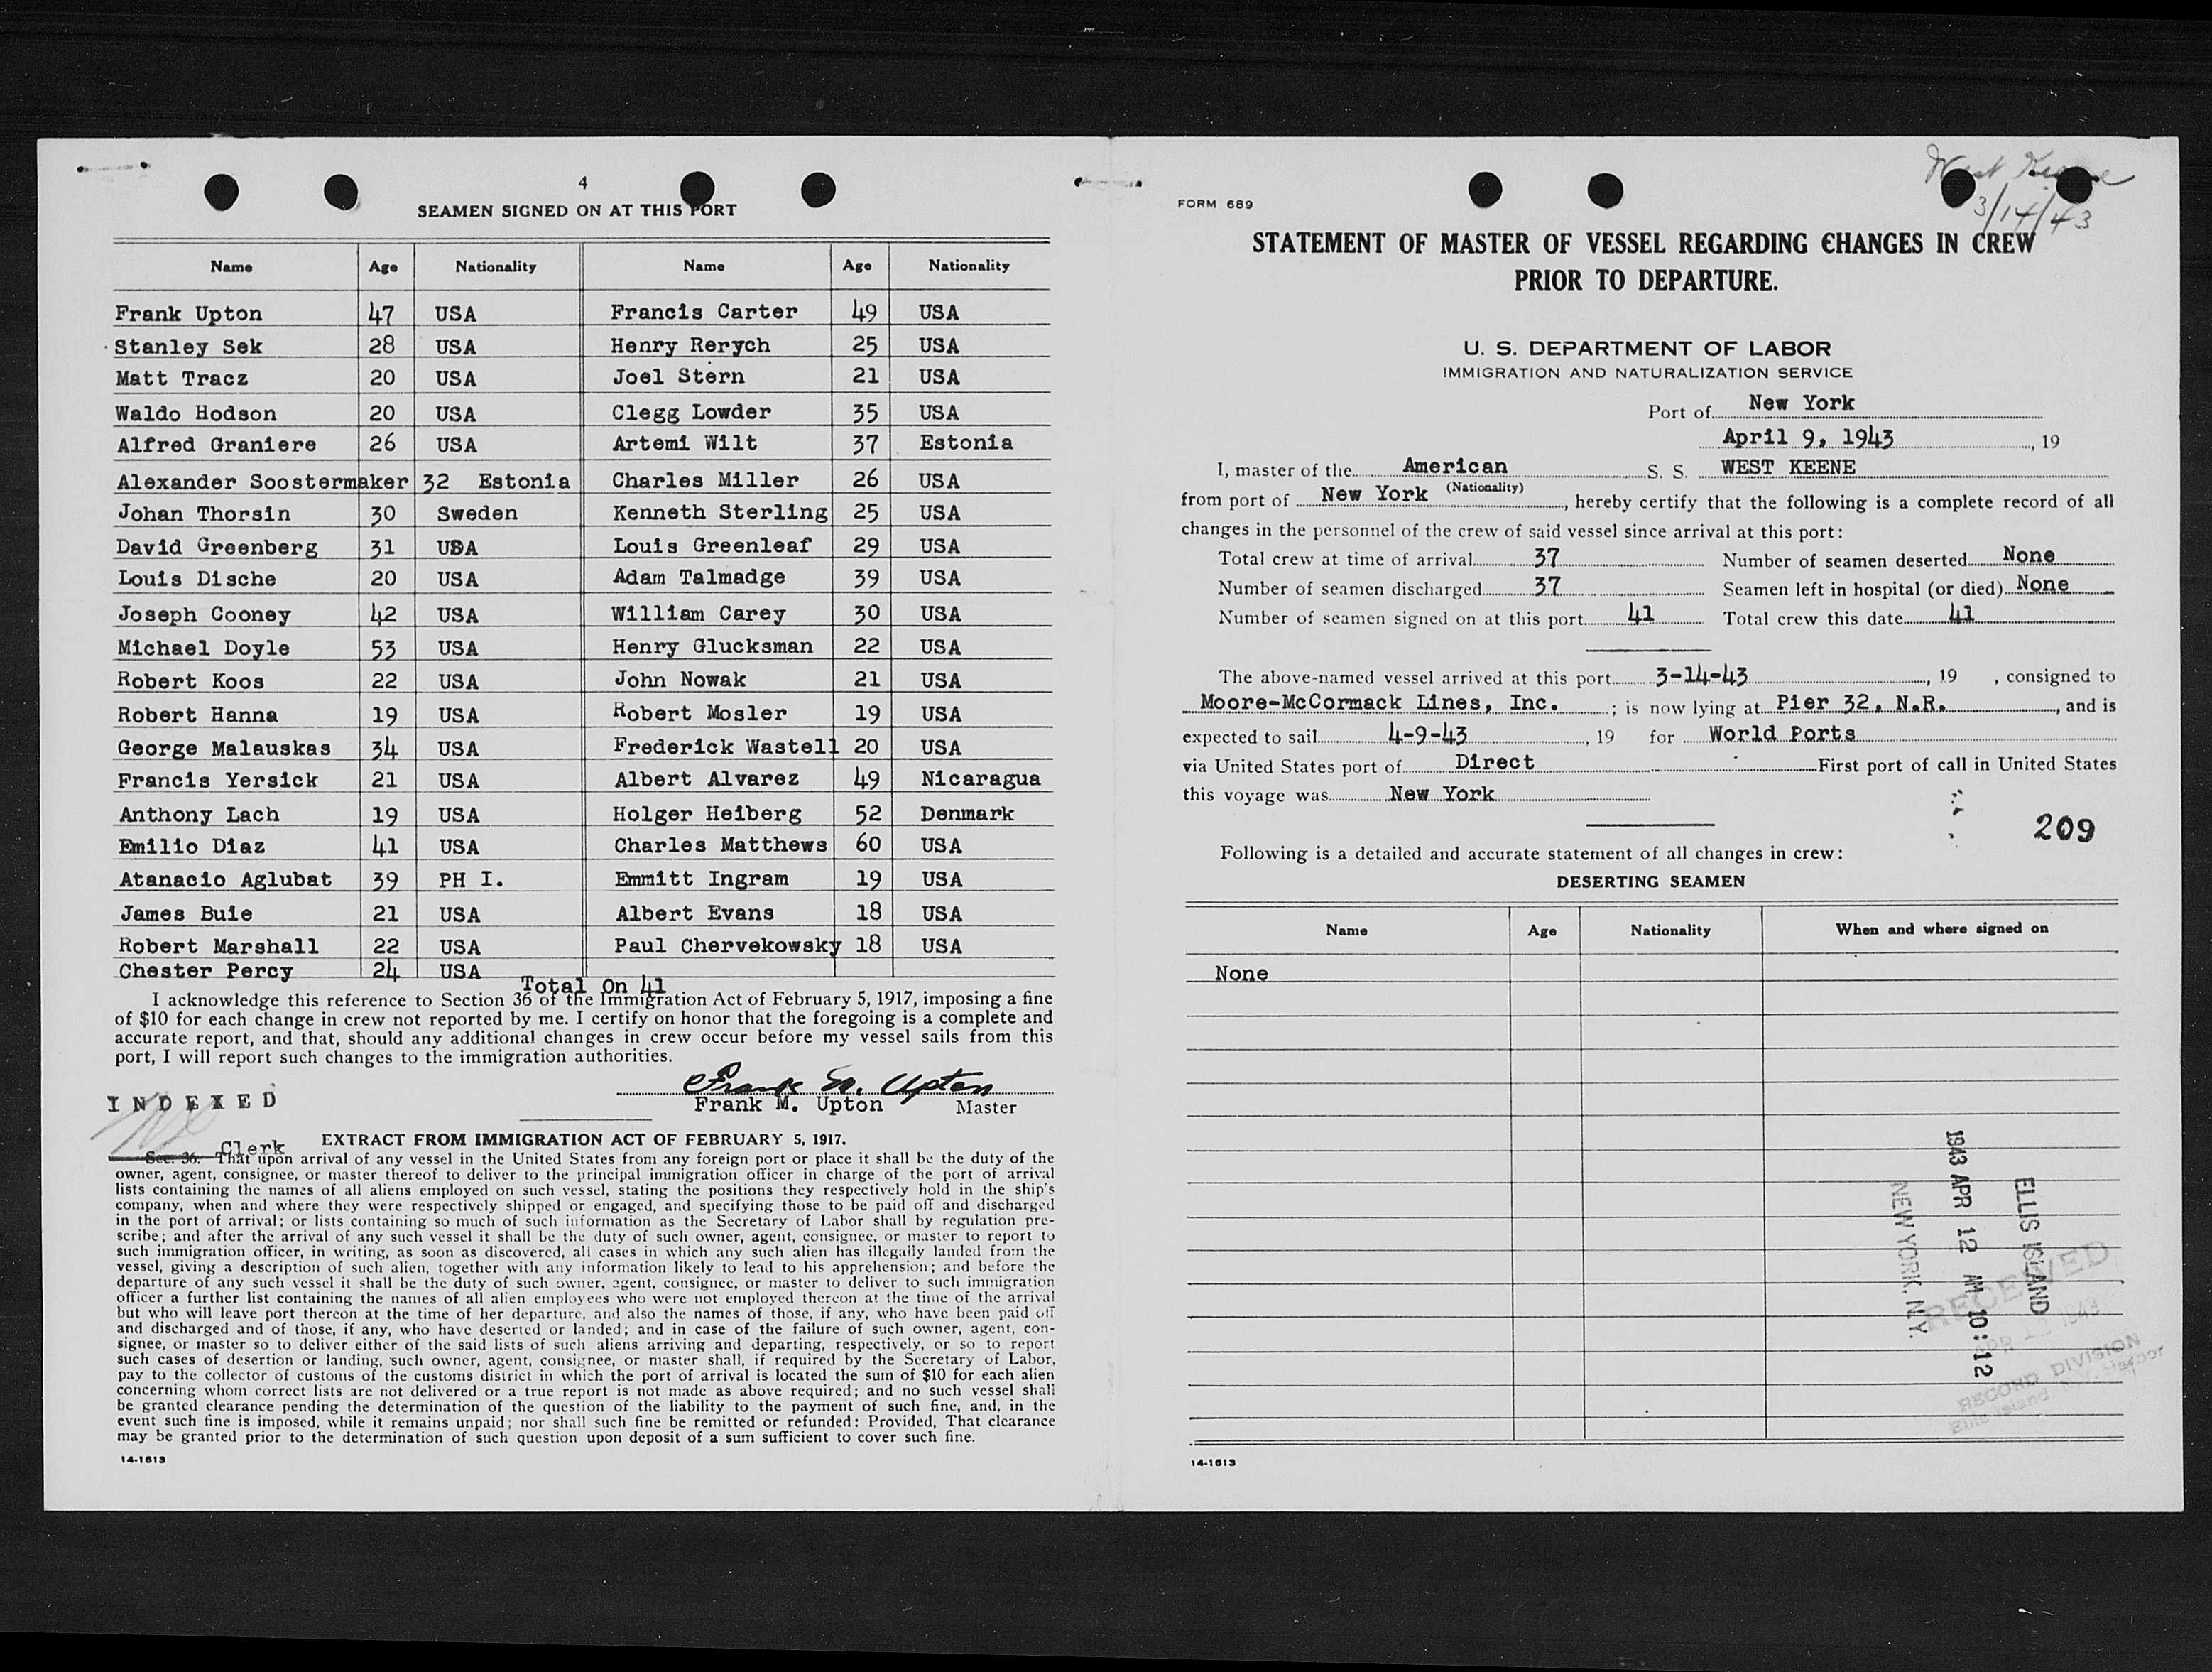 4
SEAMEN SIGNED ON AT THIS PORT
Name Age Nationality Name Age Nationality
Frank Upton 47 USA Francis Carter 49 USA
Stanley Sek 28 USA Henry Rerych 25 USA
Matt Tracz 20 USA Joel Stern 21 USA
Waldo Hodson 20 USA Clegg Lowder 35 USA
Alfred Graniere 26 USA Artemi Wilt 37 Estonia
Alexander Soostermaker 32 Estonia Charles Miller 26 USA
Johan Thorsin 30 Sweden Kenneth Sterling 25 USA
David Greenberg 31 USA Louis Greenleaf 29 USA
Louis Dische 20 USA Adam Talmadge 39 USA
Joseph Cooney 42 USA William Carey 30 USA
Michael Doyle 53 USA Henry Glucksman 22 USA
Robert Koos 22 USA John Nowak 21 USA
Robert Hanna 19 USA Robert Mosler 19 USA
George Malauskas 34 USA Frederick Wastell 20 USA
Francis Yersick 21 USA Albert Alvarez 49 Nicaragua
Anthony Lach 19 USA Holger Heiberg 52 Denmark
Emilio Diaz 41 USA Charles Matthews 60 USA
Atanacio Aglubat 39 PH I. Emmitt Ingram 19 USA
James Buie 21 USA Albert Evans 18 USA
Robert Marshall 22 USA Paul Chervekowsky 18 USA
Chester Percy 24 USA
Total On 41
I acknowledge this reference to Section 36 of the Immigration Act of February 5, 1917, imposing a fine
of $10 for each change in crew not reported by me. I certify on honor that the foregoing is a complete and
accurate report, and that, should any additional changes in crew occur before my vessel sails from this
port, I will report such changes to the immigration authorities.
Frank M. Upton
Frank M. Upton Master
INDEXED
Clerk
EXTRACT FROM IMMIGRATION ACT OF FEBRUARY 5, 1917.
Sec. 36. That upon arrival of any vessel in the United States from any foreign port or place it shall be the duty of the
owner, agent, consignee, or master thereof to deliver to the principal immigration officer in charge of the port of arrival
lists containing the names of all aliens employed on such vessel, stating the positions they respectively hold in the ship's
company, when and where they were respectively shipped or engaged, and specifying those to be paid off and discharged
in the port of arrival; or lists containing so much of such information as the Secretary of Labor shall by regulation pre-
scribe; and after the arrival of any such vessel it shall be the duty of such owner, agent, consignee, or master to report to
such immigration officer, in writing, as soon as discovered, all cases in which any such alien has illegally landed from the
vessel, giving a description of such alien, together with any information likely to lead to his apprehension; and before the
departure of any such vessel it shall be the duty of such owner, agent, consignee, or master to deliver to such immigration
officer a further list containing the names of all alien employees who were not employed thereon at the time of the arrival
but who will leave port thereon at the time of her departure, and also the names of those, if any, who have been paid off
and discharged and of those, if any, who have deserted or landed; and in case of the failure of such owner, agent, con-
signee, or master so to deliver either of the said lists of such aliens arriving and departing, respectively, or so to report
such cases of desertion or landing, such owner, agent, consignee, or master shall, if required by the Secretary of Labor,
pay to the collector of customs of the customs district in which the port of arrival is located the sum of $10 for each alien
concerning whom correct lists are not delivered or a true report is not made as above required; and no such vessel shall
be granted clearance pending the determination of the question of the liability to the payment of such fine, and, in the
event such fine is imposed, while it remains unpaid; nor shall such fine be remitted or refunded: Provided, That clearance
may be granted prior to the determination of such question upon deposit of a sum sufficient to cover such fine.
14-1613
West Keene
3/14/43
FORM 689
STATEMENT OF MASTER OF VESSEL REGARDING CHANGES IN CREW
PRIOR TO DEPARTURE.
U. S. DEPARTMENT OF LABOR
IMMIGRATION AND NATURALIZATION SERVICE
Port of New York
April 9, 1943, 19
I, master of the American S. S. WEST KEENE
(Nationality)
from port of New York, hereby certify that the following is a complete record of all
changes in the personnel of the crew of said vessel since arrival at this port:
Total crew at time of arrival 37 Number of seamen deserted None
Number of seamen discharged 37 Seamen left in hospital (or died) None
Number of seamen signed on at this port 41 Total crew this date 41
The above-named vessel arrived at this port 3-14-43, 19 , consigned to
Moore-McCormack Lines, Inc. ; is now lying at Pier 32, N.R., and is
expected to sail 4-9-43, 19 for World Ports
via United States port of Direct First port of call in United States
this voyage was New York
209
Following is a detailed and accurate statement of all changes in crew:
DESERTING SEAMEN
Name Age Nationality When and where signed on
None
ELLIS ISLAND
1943 APR 12 AM 10:12
NEW YORK, N.Y.
RECEIVED
RECORD DIVISION
Ellis Island, N.Y. Harbor
14-1613